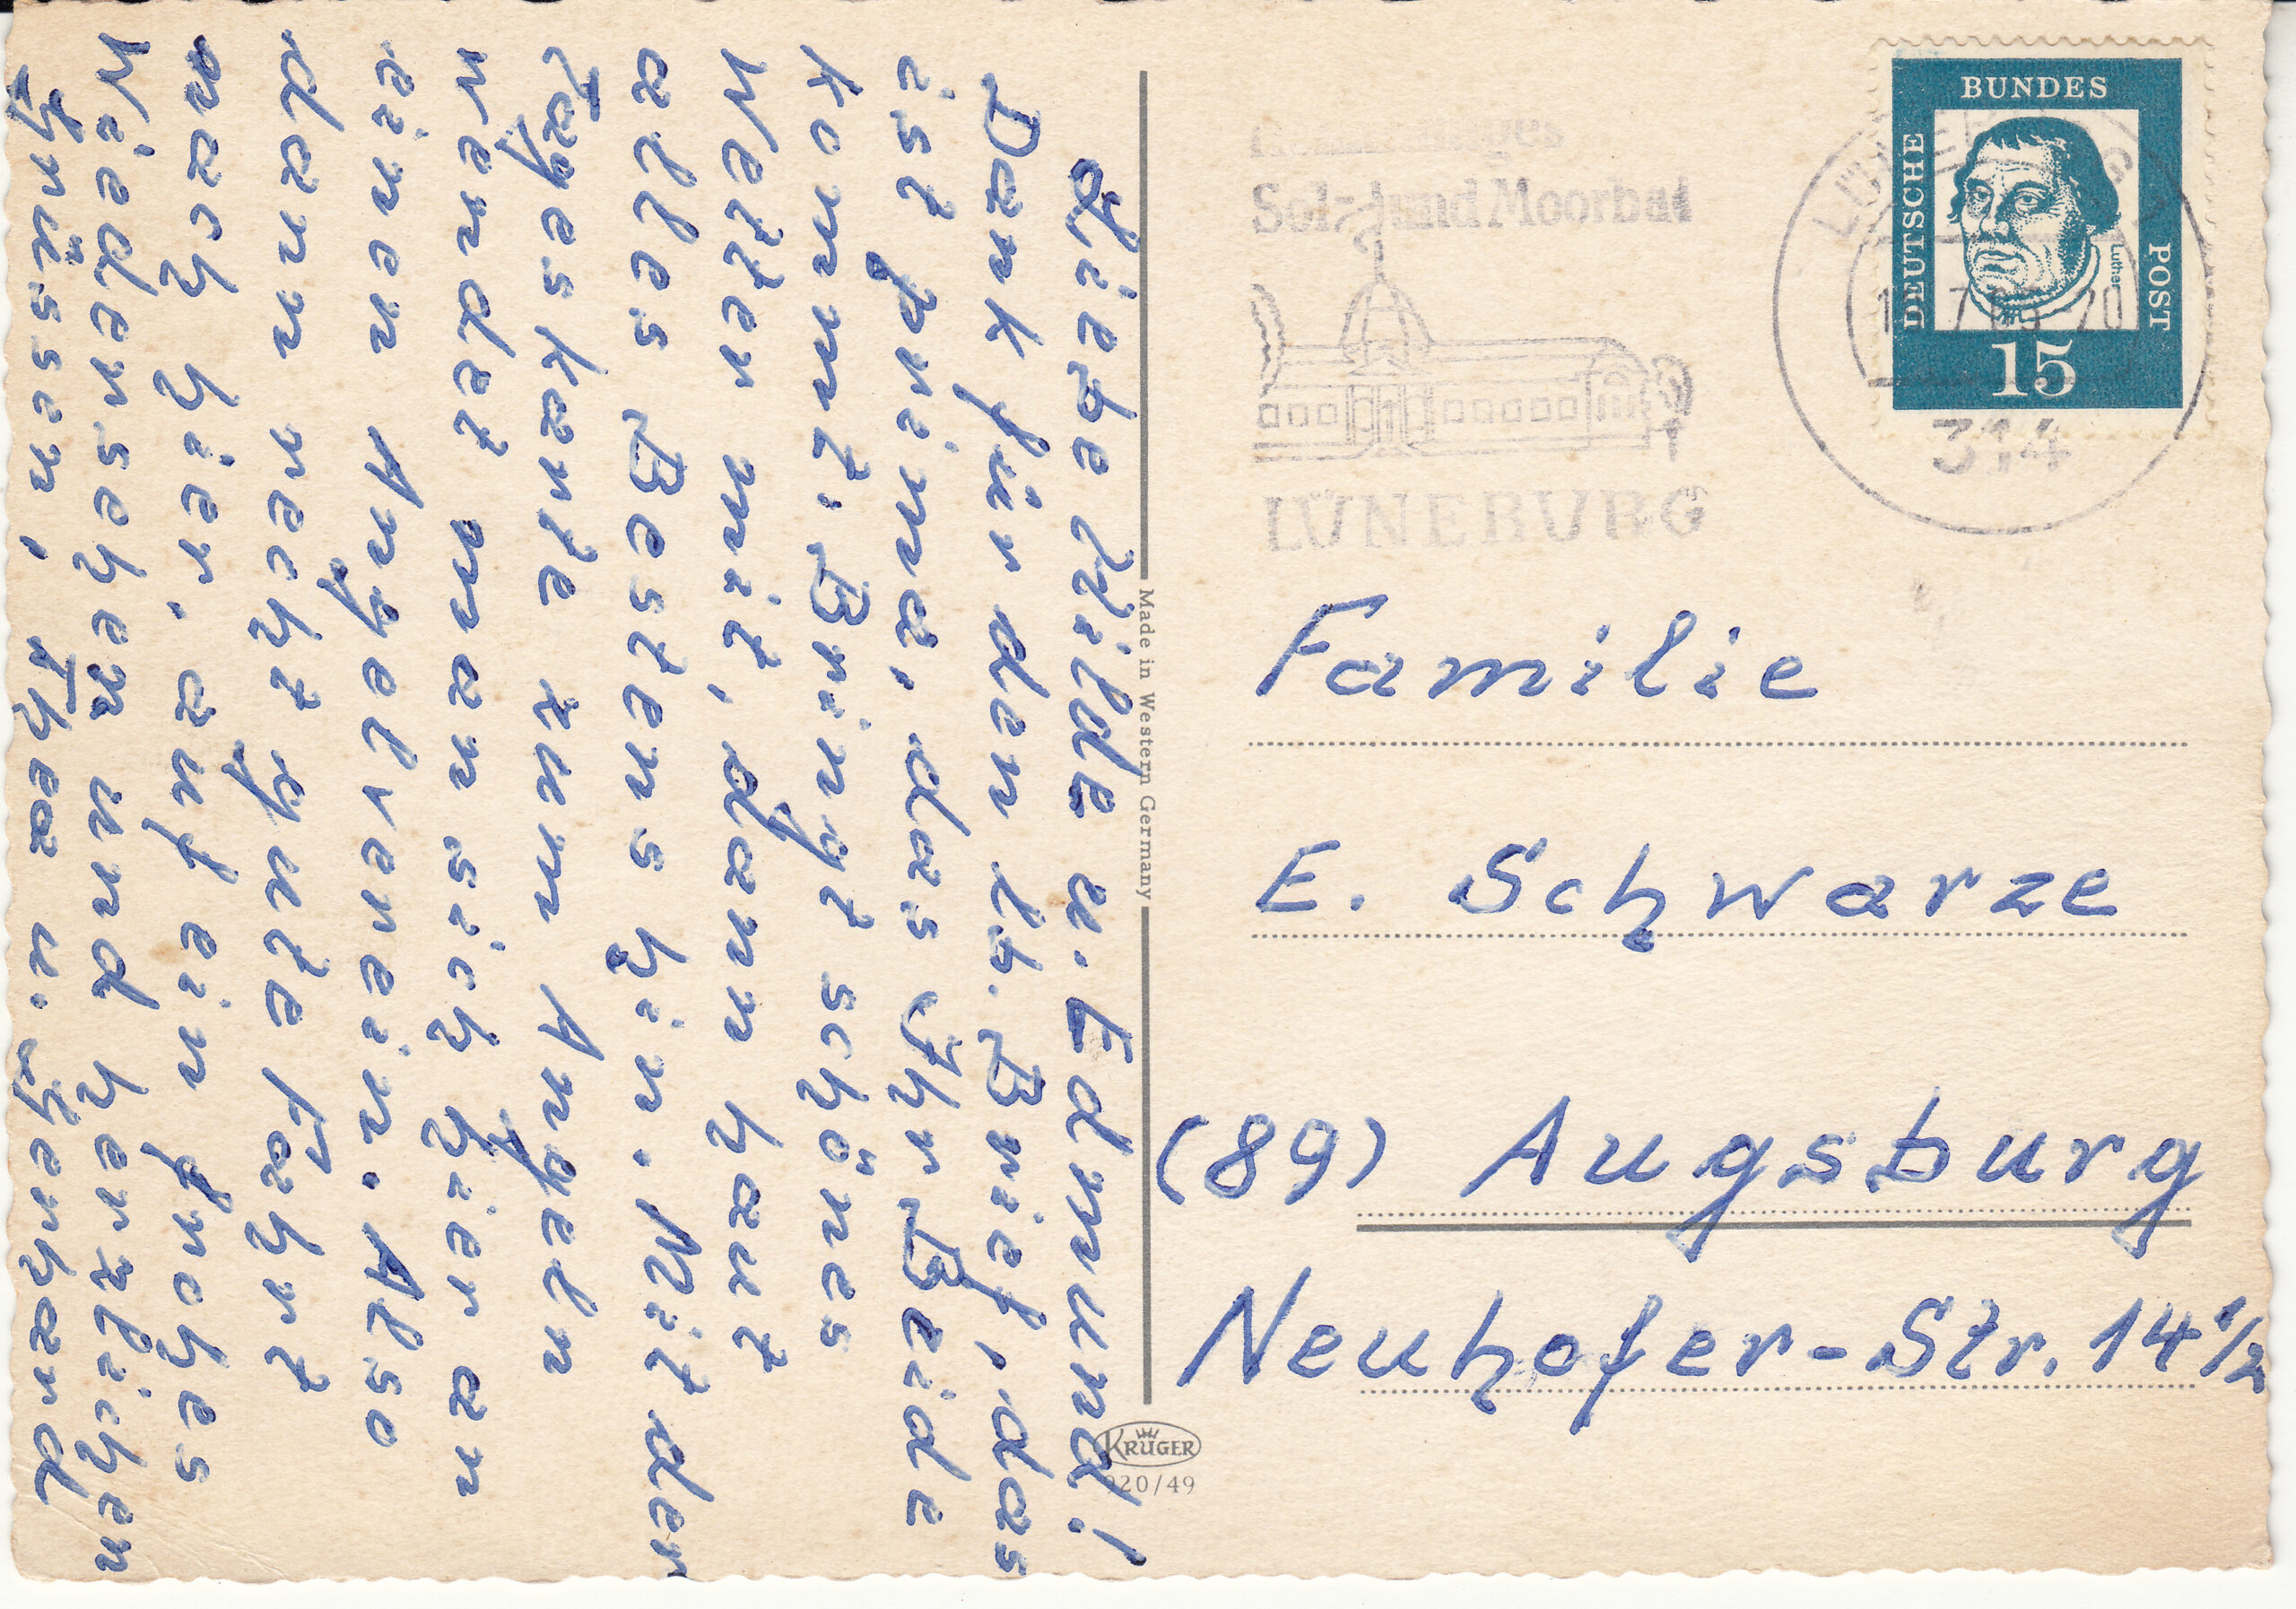 Liebe Hilde u. Edmund!
Dank für den lb. Brief, das
ist prima, das Ihr Beide
kommt. Bringt schönes
Wetter mit, dann haut
alles Bestens hin. Mit der
Tageskarte zum Angeln
wendet man sich hier an
einen Angelverein. Also
dann recht gute Fahrt
nach hier. auf ein frohes
Wiedersehen und herzlichen
grüssen, Thea u. Gerhard
Made in Western Germany
KRÜGER
920/49
Sol- und Moorbad
LÜNEBURG
LÜNEBURG
314
DEUTSCHE
BUNDES
POST
Luther
15
Familie
E. Schwarze
(89) Augsburg
Neuhofer-Str. 14 1/2